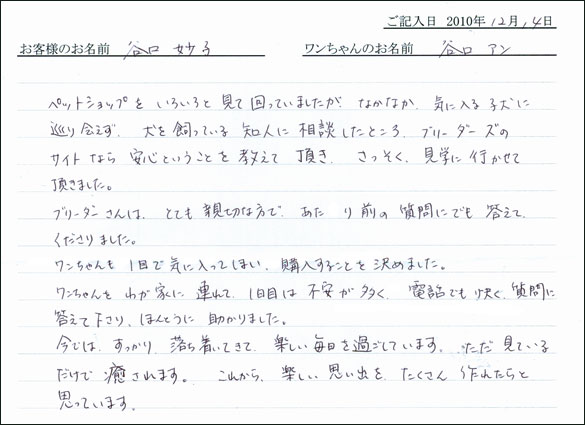 ご記入日 2010年 12月 14日
お客様のお名前 谷口 妙子 ワンちゃんのお名前 谷口 アン
ペットショップを いろいろと 見て回っていましたが なかなか 気に入る 子犬に
巡り会えず、犬を飼っている 知人に 相談したところ、ブリーダーズの
サイトなら 安心ということを 教えて 頂き、さっそく、見学に 行かせて
頂きました。
ブリーダーさんは、とても 親切な方で、あたり前の 質問にでも 答えて、
くださりました。
ワンちゃんも 1目で 気に入ってしまい、購入することを 決めました。
ワンちゃんを わが家に 連れて、1日目は 不安が多く、電話でも 快く、質問に
答えて下さり、ほんとうに 助かりました。
今では、すっかり、落ち着いてきて、楽しい毎日を過ごしています。ただ 見ている
だけで 癒されます。これから、楽しい 思い出を、たくさん 作れたらと
思っています。